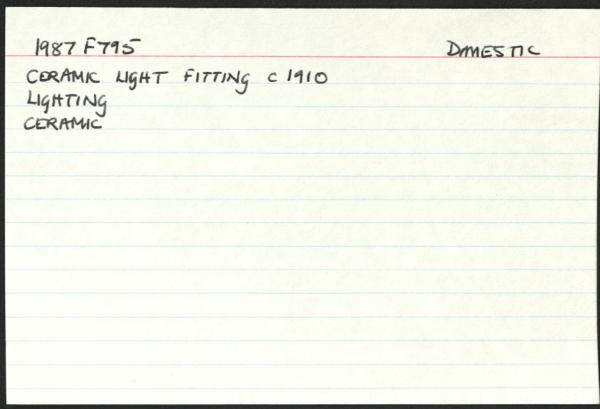 1987 F795 DOMESTIC
CERAMIC LIGHT FITTING c 1910
LIGHTING
CERAMIC